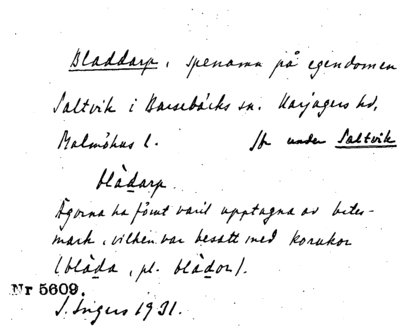 Bladdarp, spenamn på egendomen
Saltvik i Barsebäcks sn. Harjagers hd,
Malmöhus l. Jfr under Saltvik
blȧdarp.
Ägorna ha förut varit upptagna av betes-
mark, vilken var besatt med korukor
(blȧda, pl. blȧdor).
Nr 5609.
I. Ingers 1931.